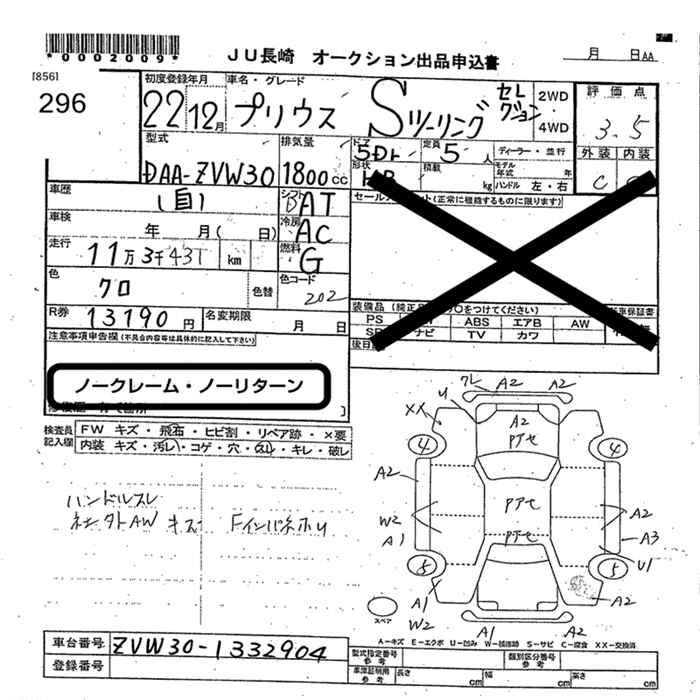 *0002009*
JU長崎 オークション出品申込書
月 日AA
[856]
296
初度登録年月 車名・グレード
22 12月 プリウス Sツーリング セレクション
2WD・4WD
評価点
3.5
外装 内装
C C
型式
DAA-ZVW30
排気量
1800cc
ドア 5Dr
形状
定員 5人
積載 kg
ディーラー・並行
モデル年式 年
ハンドル 左・右
車歴
(自)
シフト AT
冷房 AC
燃料 G
車検 年 月( 日)
走行 11万3千431 km
色 クロ 色替
色コード 202
R券 13190円
名変期限 月 日
注意事項申告欄(不具合内容等は具体的に記入して下さい)
ノークレーム・ノーリターン
(正常に機能するものに限ります)
PS ABS エアB AW
ナビ TV カワ
検査員記入欄
FW キズ・飛石・ヒビ割・リペア跡・×要
内装 キズ・汚レ・コゲ・穴・スレ・キレ・破レ
ハンドルスレ
AW キズ
A2 A2
U
XX
A2
4 4
A2
W2
A1
A2
A3
U1
5 5
A1
W2
A2
A1 A2
スペア
A-キズ E-エクボ U-凹み W-補修跡 S-サビ C-腐食 XX-交換済
車台番号 ZVW30-1332904
登録番号
型式指定番号 参考
類別区分番号 参考
車庫証明用 参考
長さ cm 幅 cm 高さ cm